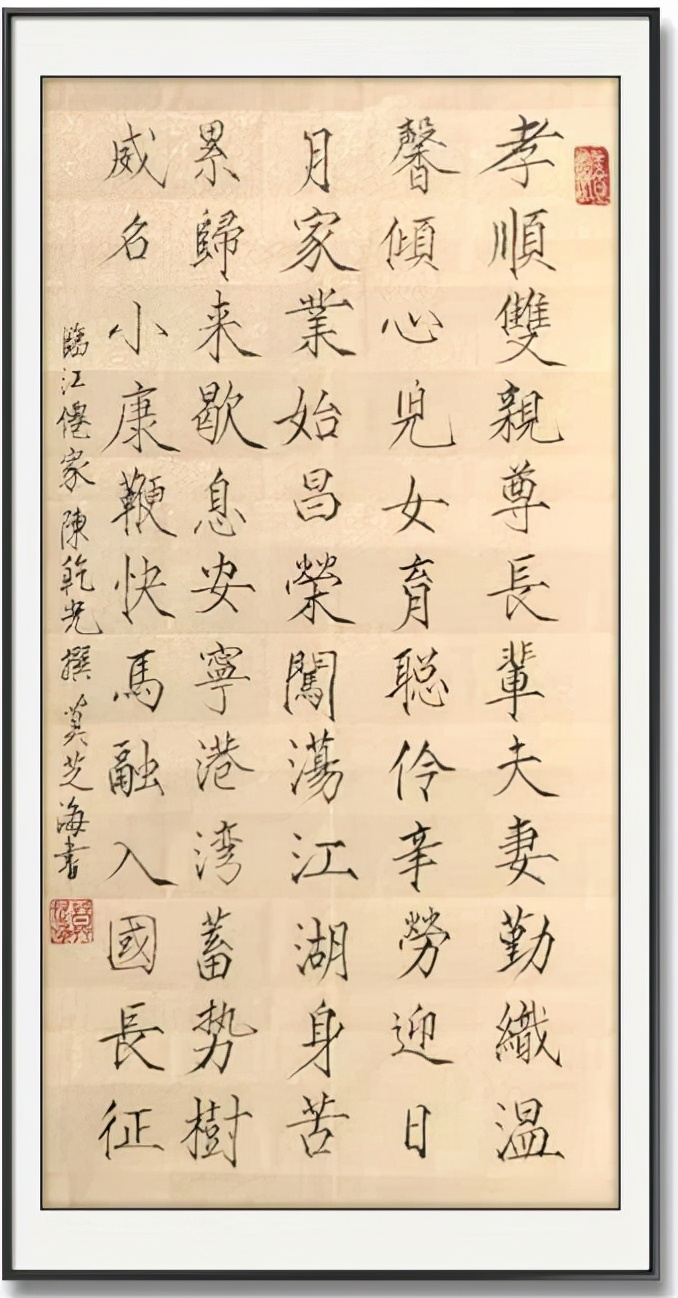 孝順雙親尊長輩夫妻勤織温
馨傾心兒女育聪伶辛勞迎日
月家業始昌榮闖蕩江湖身苦
累歸来歇息安寧港湾蓄势樹
威名小康鞭快馬融入國長征
臨江僊家陳乾光撰莫芝海書